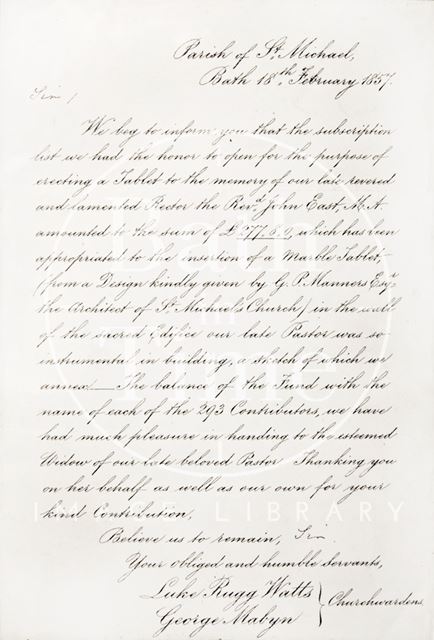 Parish of St. Michael,
Bath 18th February 1857.
Sir,
We beg to inform you that the subscription
list we had the honor to open for the purpose of
erecting a Tablet to the memory of our late revered
and lamented Rector the Revd. John East, M.A.
amounted to the sum of £77.6.9, which has been
appropriated to the insertion of a Marble Tablet,
(from a Design kindly given by G. P. Manners Esqr.
the Architect of St. Michael's Church) in the wall
of the sacred Edifice our late Pastor was so
instrumental in building, a sketch of which we
annex. — The balance of the Fund with the
name of each of the 293 Contributors, we have
had much pleasure in handing to the esteemed
Widow of our late beloved Pastor. Thanking you
on her behalf as well as our own for your
kind Contribution,
Believe us to remain, Sir.
Your obliged and humble servants,
Luke Rugg Watts
George Mabyn
} Churchwardens.
Bath
in
Time
IMAGE LIBRARY